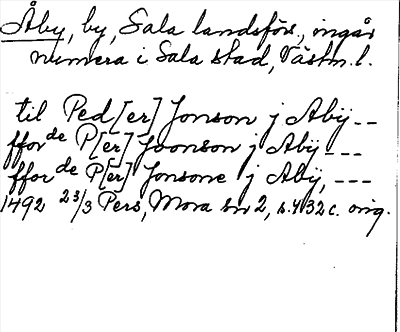 Åby, by, Sala landsförs., ingår
numera i Sala stad, Västm. l.
til Ped[er] Jonson j Abÿ --
fforde P[er] Joonson j Abÿ ---
fforde P[er] Jonsone j Abÿ, ---
1492 23/3 Pers, Mora sn 2, s. 432 c. orig.